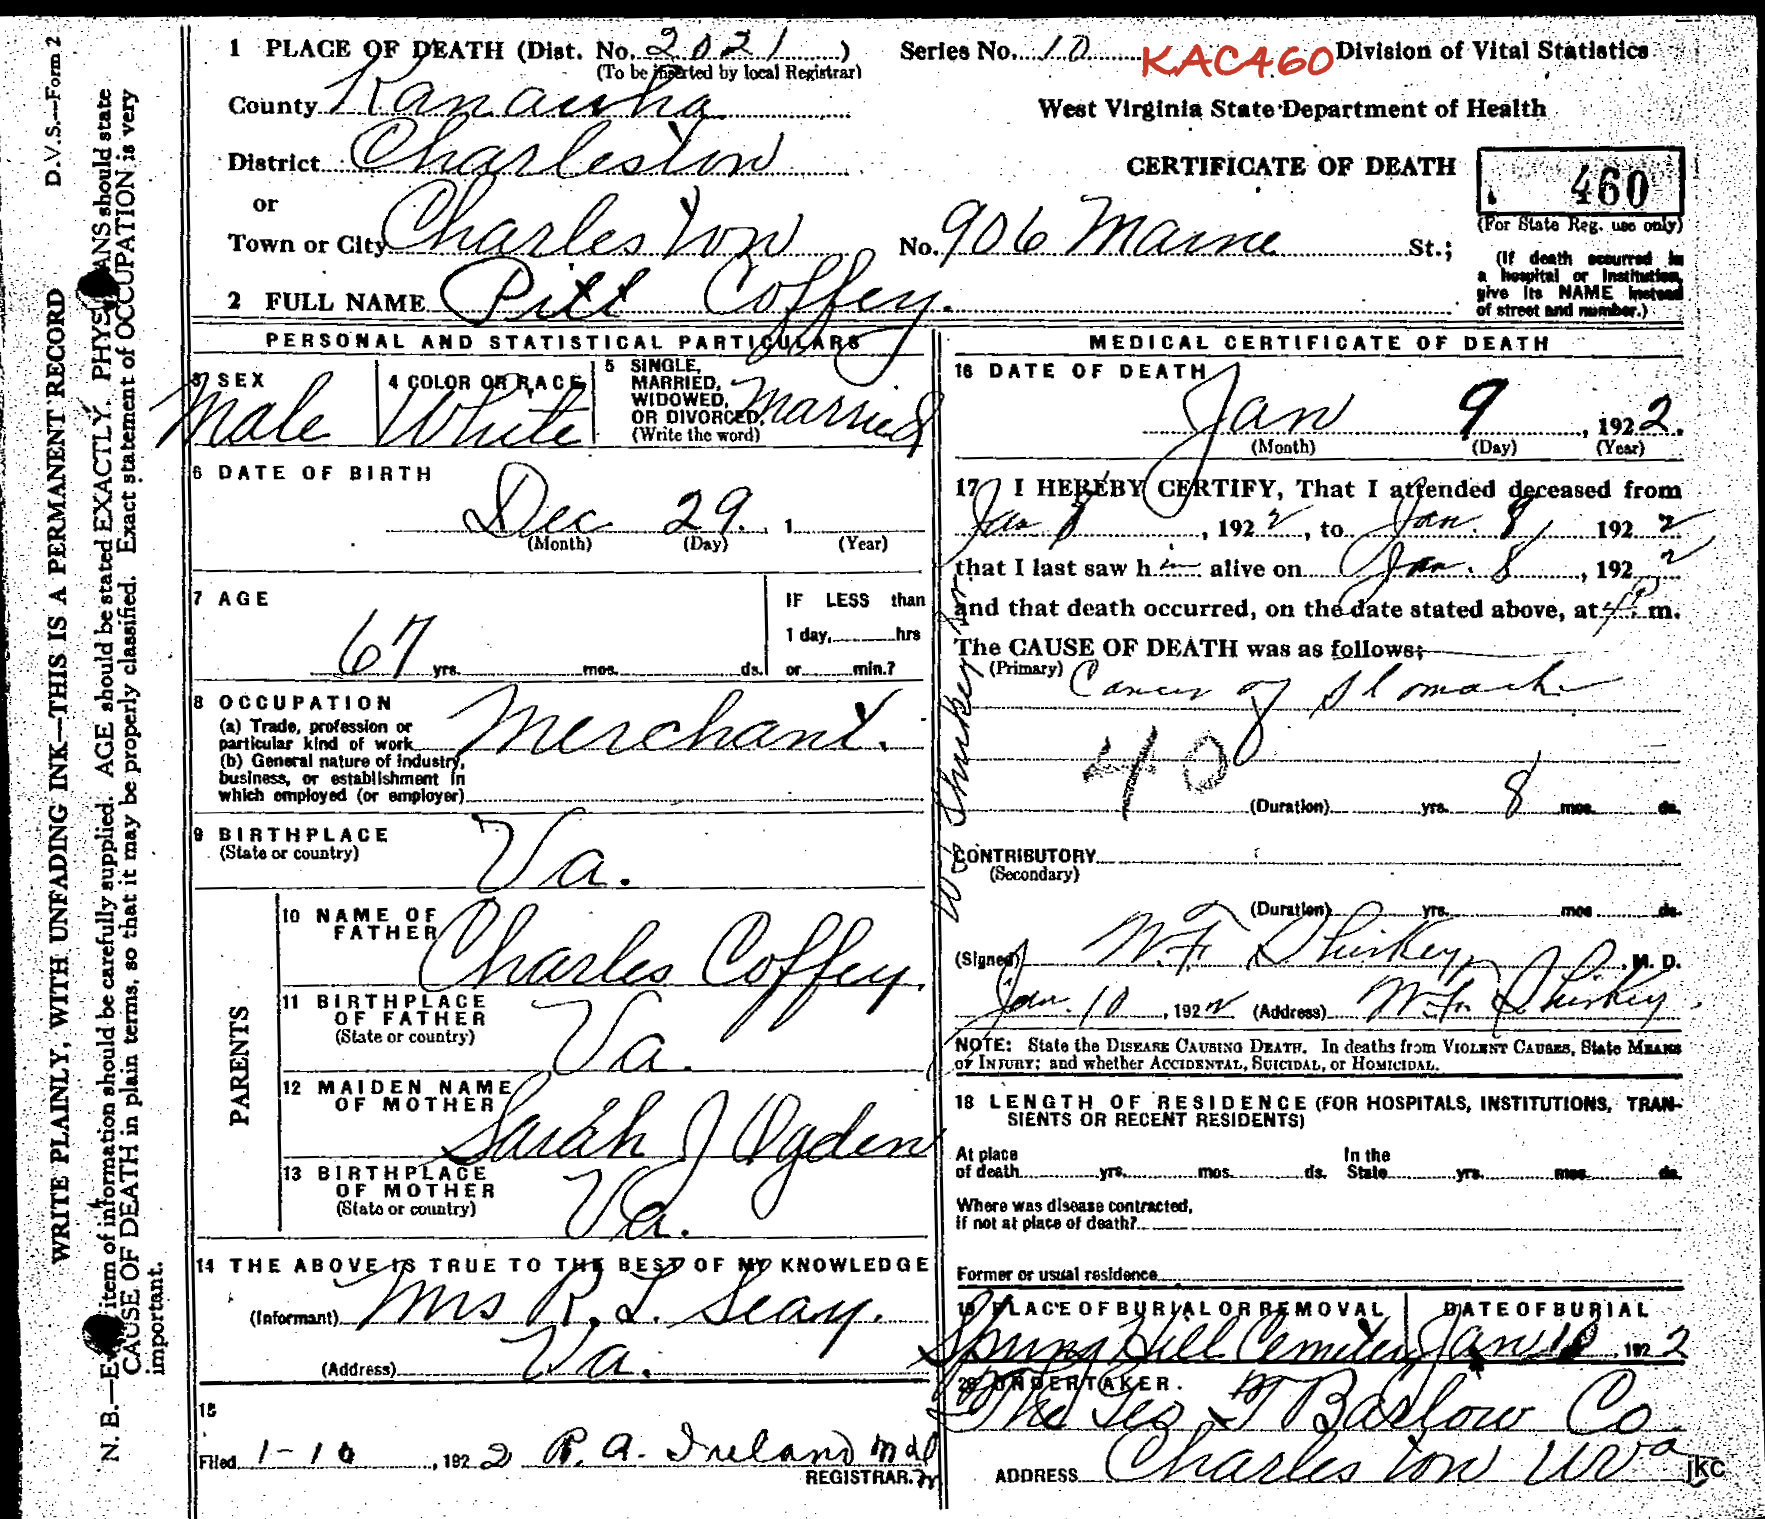 D.V.S.—Form 2
WRITE PLAINLY, WITH UNFADING INK—THIS IS A PERMANENT RECORD
N. B.—E item of information should be carefully supplied. AGE should be stated EXACTLY. PHYS ANS should state
CAUSE OF DEATH in plain terms, so that it may be properly classified. Exact statement of OCCUPATION is very
important.
1 PLACE OF DEATH (Dist. No. 2021)
(To be inserted by local Registrar)
County Kanawha
District Charleston
or
Town or City Charleston No. 906 Maine St.;
2 FULL NAME Pitt Coffey.
Series No. 10 KAC460 Division of Vital Statistics
West Virginia State Department of Health
CERTIFICATE OF DEATH
460
(For State Reg. use only)
(If death occurred in
a hospital or institution,
give its NAME instead
of street and number.)
PERSONAL AND STATISTICAL PARTICULARS
3 SEX
Male
4 COLOR OR RACE
White
5 SINGLE,
MARRIED,
WIDOWED,
OR DIVORCED,
(Write the word)
Married
6 DATE OF BIRTH
Dec 29. 1
(Month) (Day) (Year)
7 AGE
67 yrs. mos. ds.
IF LESS than
1 day, hrs
or min.?
8 OCCUPATION
(a) Trade, profession or
particular kind of work Merchant.
(b) General nature of industry,
business, or establishment in
which employed (or employer)
9 BIRTHPLACE
(State or country)
Va.
PARENTS
10 NAME OF
FATHER
Charles Coffey.
11 BIRTHPLACE
OF FATHER
(State or country)
Va.
12 MAIDEN NAME
OF MOTHER
Sarah J Ogden
13 BIRTHPLACE
OF MOTHER
(State or country)
Va.
14 THE ABOVE IS TRUE TO THE BEST OF MY KNOWLEDGE
(Informant) Mrs R. L. Seay.
(Address) Va.
15
Filed 1-10, 1922 R. A. Ireland md
REGISTRAR.
MEDICAL CERTIFICATE OF DEATH
16 DATE OF DEATH
Jan 9, 1922.
(Month) (Day) (Year)
17 I HEREBY CERTIFY, That I attended deceased from
Jan 8, 1922, to Jan. 9, 1922
that I last saw him alive on Jan. 8, 1922
and that death occurred, on the date stated above, at 4 P. m.
The CAUSE OF DEATH was as follows:
(Primary) Cancer of Stomach
40
(Duration) yrs. 8 mos. ds.
CONTRIBUTORY
(Secondary)
(Duration) yrs. mos ds.
(Signed) W. F. Shirkey, M. D.
Jan. 10, 1922 (Address) W. F. Shirkey
NOTE: State the DISEASE CAUSING DEATH. In deaths from VIOLENT CAUSES, State MEANS
OF INJURY; and whether ACCIDENTAL, SUICIDAL, or HOMICIDAL.
18 LENGTH OF RESIDENCE (FOR HOSPITALS, INSTITUTIONS, TRAN-
SIENTS OR RECENT RESIDENTS)
At place
of death yrs. mos. ds.
In the
State yrs. mos. ds.
Where was disease contracted,
if not at place of death?
Former or usual residence
19 PLACE OF BURIAL OR REMOVAL
Spring Hill Cemetery
DATE OF BURIAL
Jan 10 1922
20 UNDERTAKER.
The Geo T Barlow Co.
ADDRESS Charleston WVa
jkc